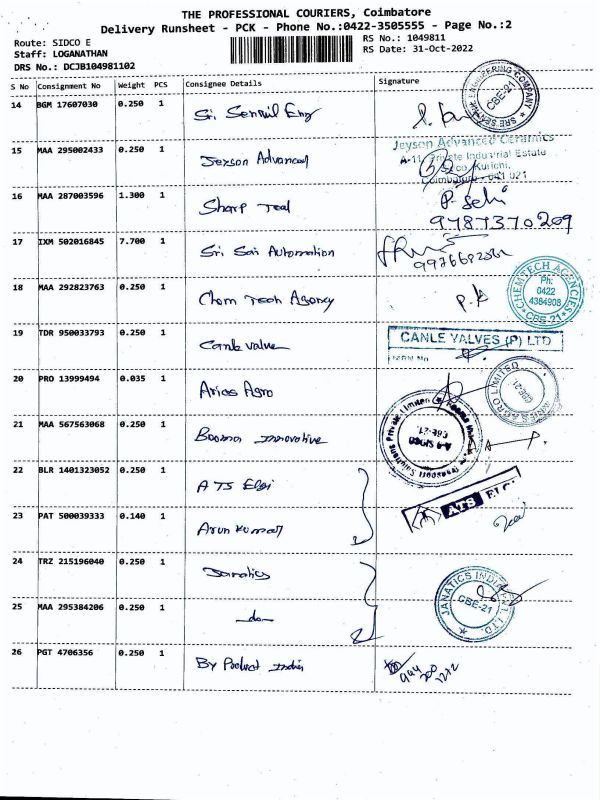 THE PROFESSIONAL COURIERS, Coimbatore
Delivery Runsheet - PCK - Phone No.:0422-3505555 - Page No.:2
Route: SIDCO E
Staff: LOGANATHAN
DRS No.: DCJB104981102
RS No.: 1049811
RS Date: 31-Oct-2022
S No Consignment No Weight PCS Consignee Details Signature
14 BGM 17607030 0.250 1 Sri Senthil Eng
SRE SENTHIL ENGINEERING COMPANY CBE-21
15 MAA 295002433 0.250 1 Jeyson Advanced
Jeyson Advanced Ceramics
Private Industrial Estate
Kurichi,
Coimbatore - 641 021
16 MAA 287003596 1.300 1 Sharp Tool
9787370209
17 IXM 502016845 7.700 1 Sri Sai Automation
18 MAA 292823763 0.250 1 Chem Tech Agency
CHEMTECH AGENCIES Ph: 0422 4384908 CBE-21
19 TDR 950033793 0.250 1 Canle valve
CANLE VALVES (P) LTD
20 PRO 13999494 0.035 1 Aries Agro
ARIES AGRO LIMITED CBE-21
21 MAA 567563068 0.250 1 Booma Innovative
CBE-21.
22 BLR 1401323052 0.250 1 ATS Elgi
ATS ELGI
23 PAT 500039333 0.140 1 Arun Kumar
24 TRZ 215196040 0.250 1 Janatics
JANATICS INDIA P. LTD. CBE-21
25 MAA 295384206 0.250 1 -do-
26 PGT 4706356 0.250 1 By Product India